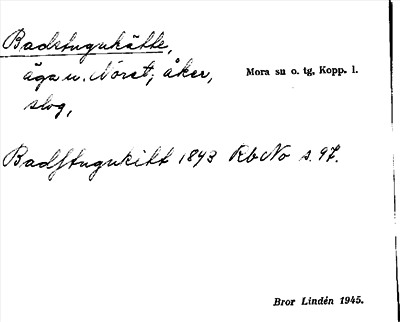 Badstugukätte,
äga u. Noret; åker,
slog,
Mora su o. tg, Kopp. l.
Badstugukitt 1843 Rb No s. 97.
Bror Lindén 1945.